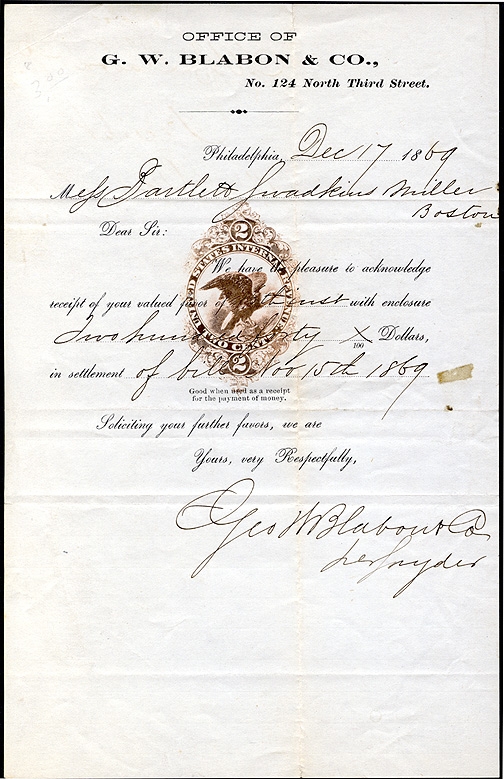 OFFICE OF
G. W. BLABON & CO.,
No. 124 North Third Street.
Philadelphia, Dec 17 1869
Mess Bartlett Miller
Boston
Dear Sir:
2
UNITED STATES INTERNAL REVENUE
We have the pleasure to acknowledge
receipt of your valued favor of inst with enclosure
Two hundred forty X/100 Dollars,
TWO CENTS
2
in settlement of bill Nov 15th 1869
Good when used as a receipt
for the payment of money.
Soliciting your further favors, we are
Yours, very Respectfully,
Geo W Blabon & Co
per Snyder